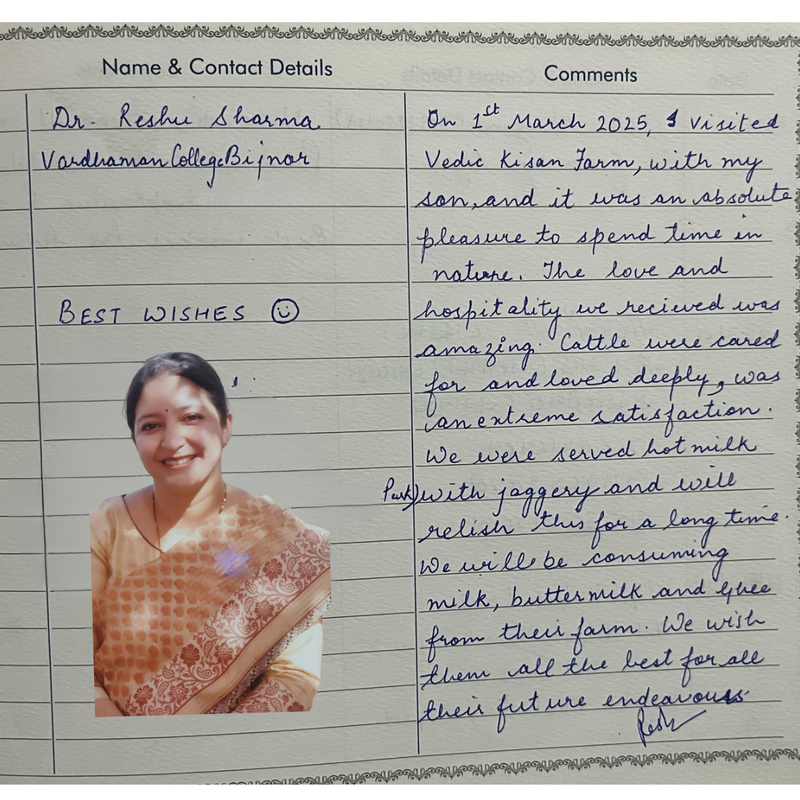 Name & Contact Details
Dr. Reshu Sharma
Vardhaman College Bijnor
BEST WISHES
Comments
On 1st March 2025, I visited
Vedic Kisan Farm, with my
son, and it was an absolute
pleasure to spend time in
nature. The love and
hospitality we recieved was
amazing. Cattle were cared
for and loved deeply, was
an extreme satisfaction.
We were served hot milk
with jaggery and will
relish this for a long time.
We will be consuming
milk, buttermilk and Ghee
from their farm. We wish
them all the best for all
their future endeavours